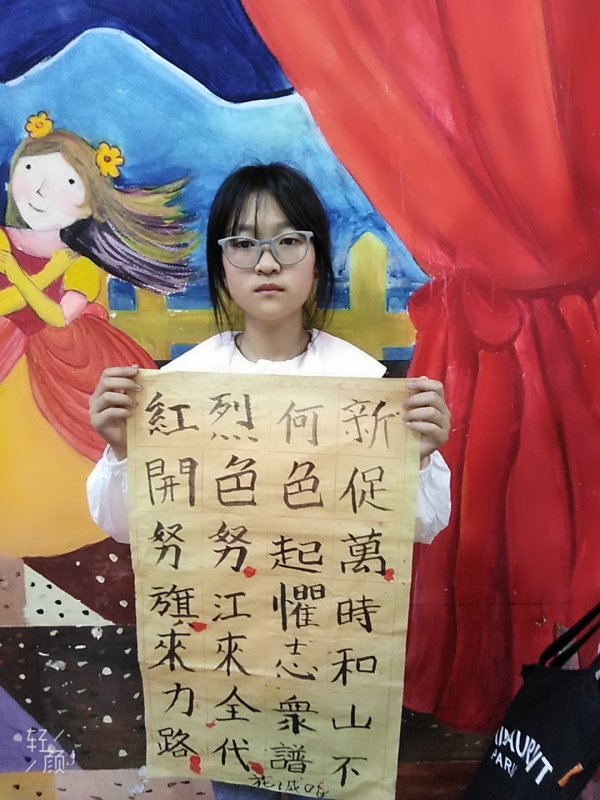 新促萬時和山不
何色起懼志衆譜
烈色努江來全代
紅開努旗來力路
轻颜